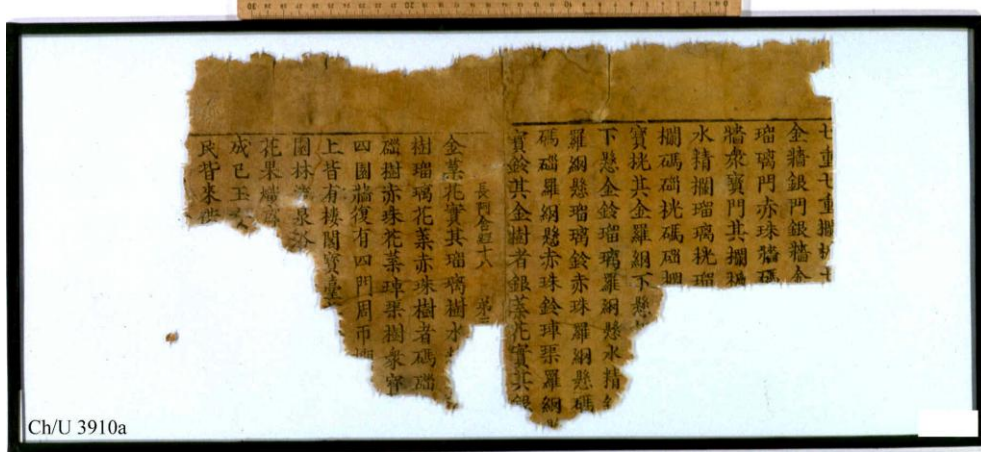 七重七重欄楯七
金牆銀門銀牆金
瑠璃門赤珠牆碼
牆衆寶門其欄楯
水精欄瑠璃桄瑠
欄碼碯桄碼碯欄
寶桄其金羅網下懸
下懸金鈴瑠璃羅網懸水精
羅網懸瑠璃鈴赤珠羅網懸碼
碼碯羅網懸赤珠鈴硨渠羅網
寶鈴其金樹者銀葉花實其銀
長阿含經十八 第二
金葉花實其瑠璃樹水
樹瑠璃花葉赤珠樹者碼碯
碯樹赤珠花葉硨渠樹衆寶
四園牆復有四門周帀欄
上皆有樓閣寶臺
園林流泉浴
花果熾盛
成已玉女
民皆來供
Ch/U 3910a